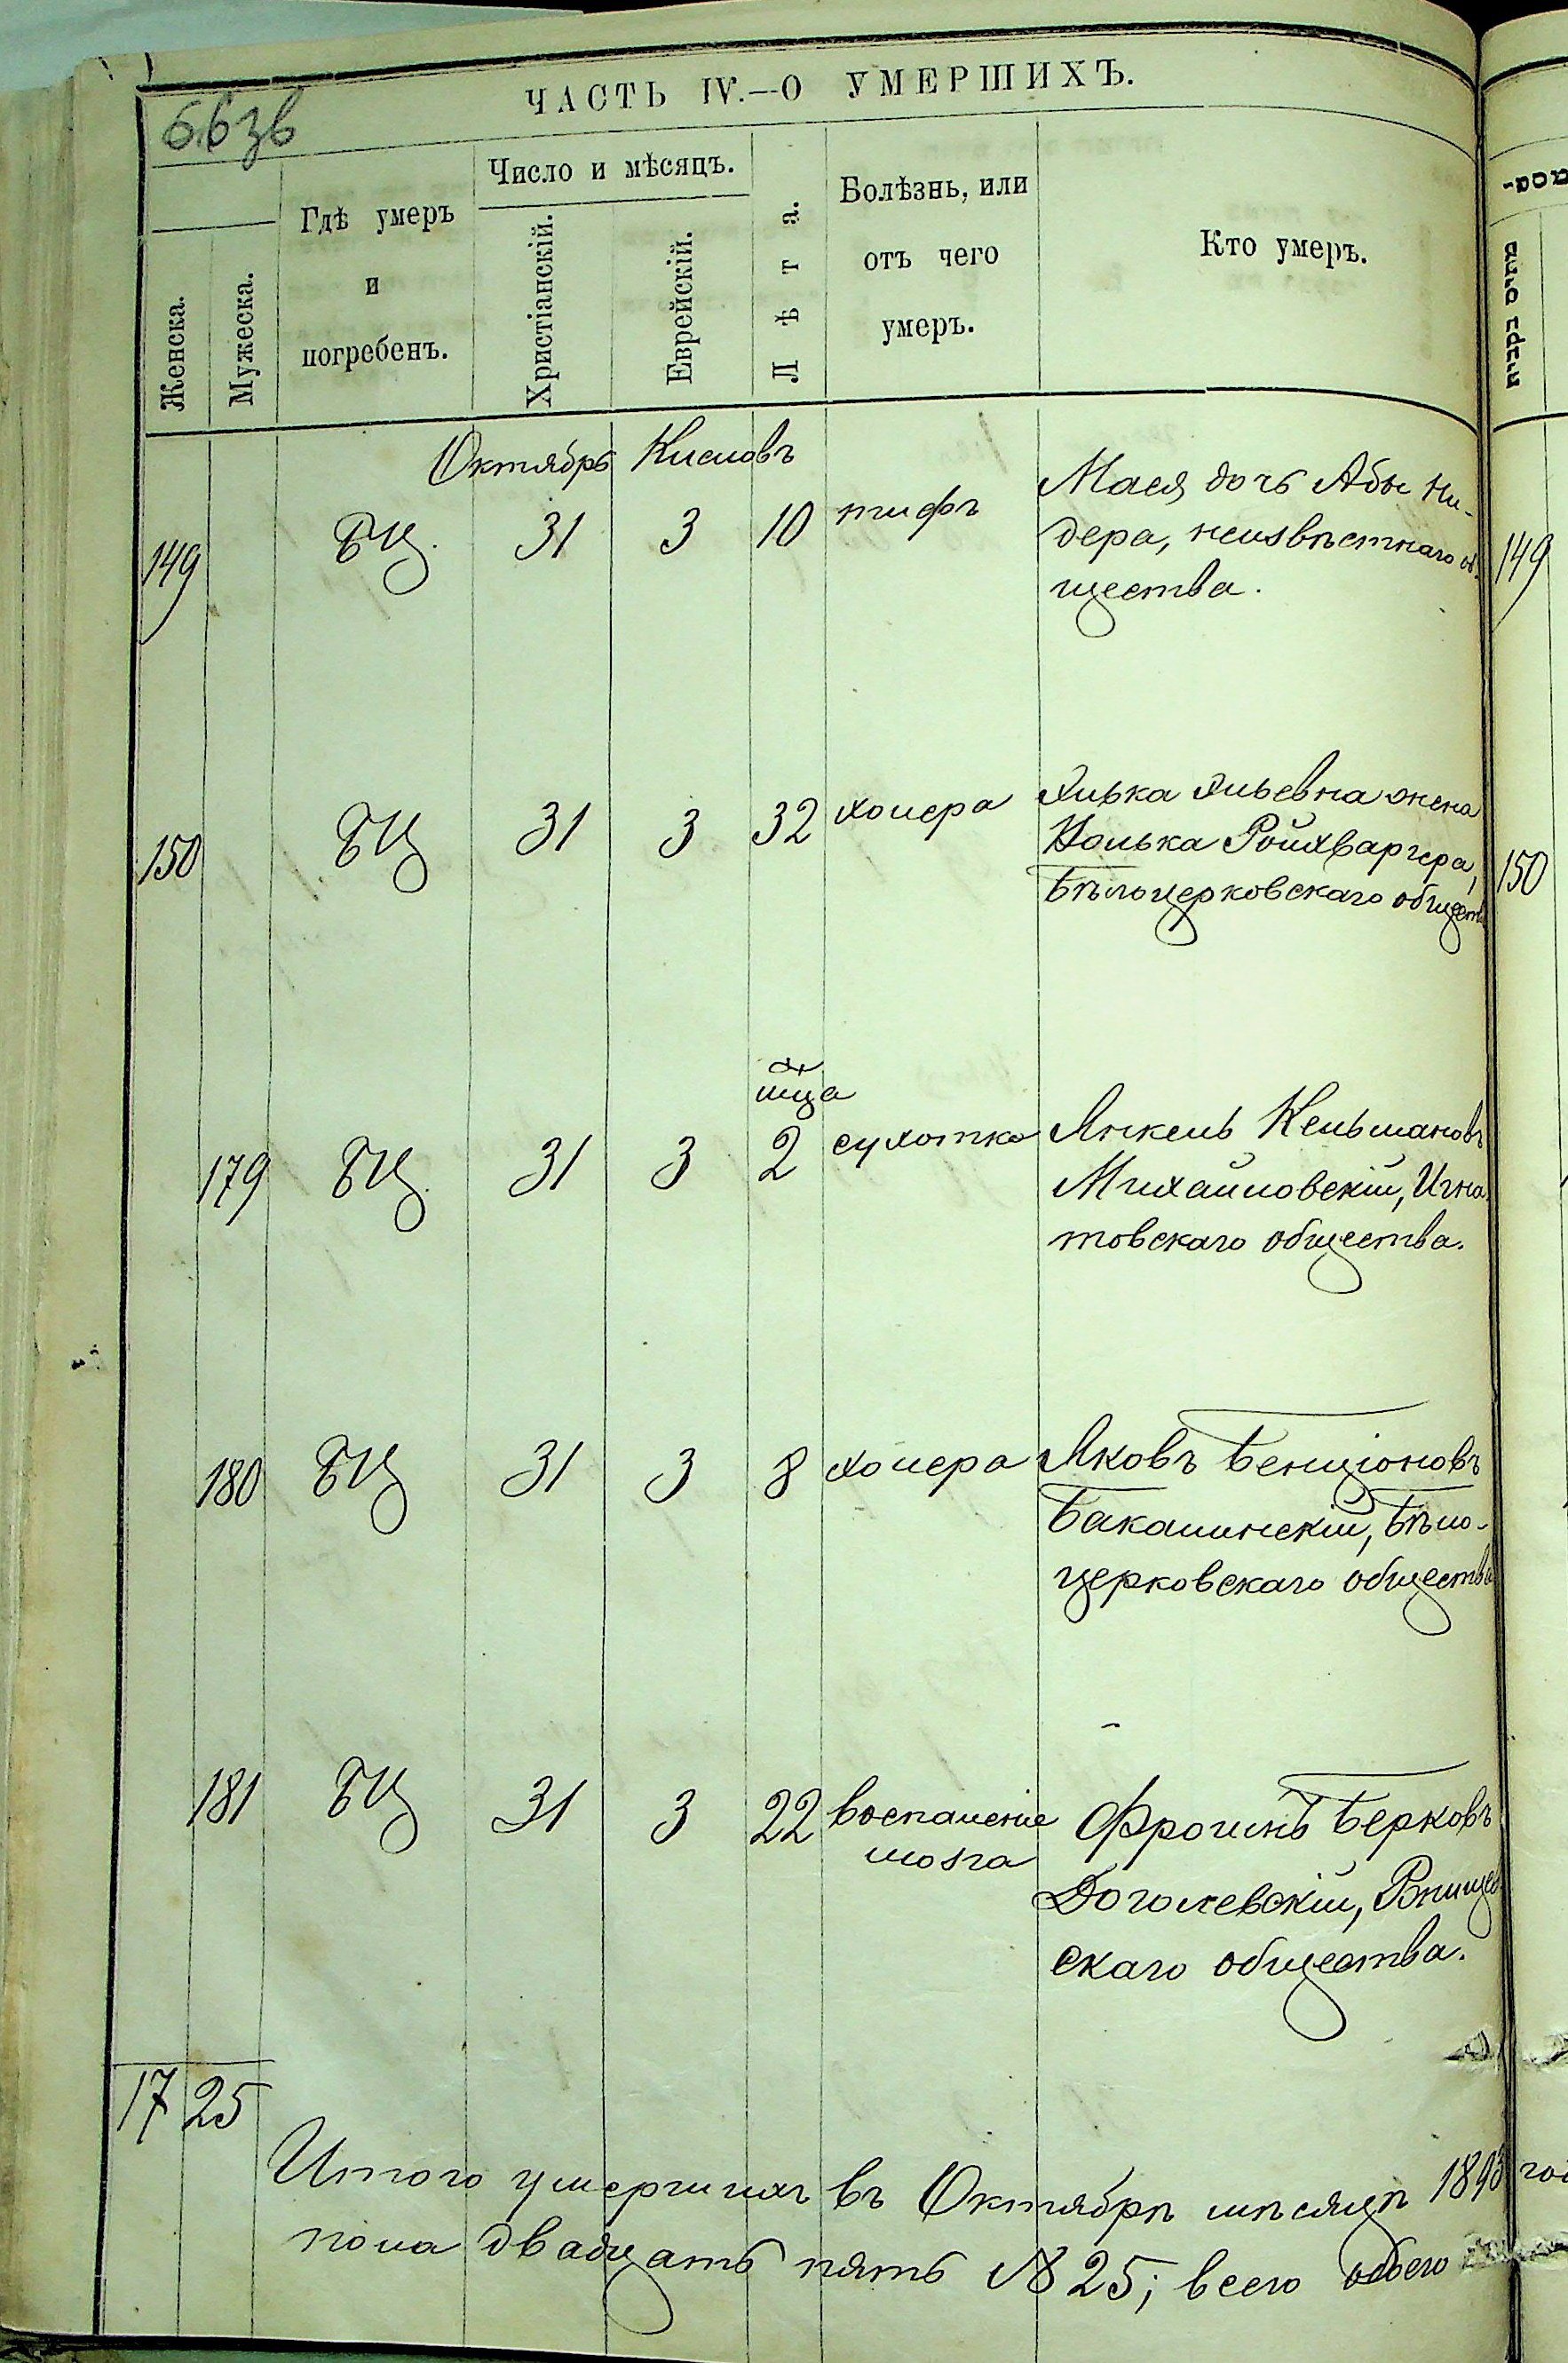 ЧАСТЬ IV.—О УМЕРШИХЪ.
Женска.
Мужеска.
Гдѣ умеръ
и
погребенъ.
Число и мѣсяцъ.
Христіанскій.
Еврейскій.
Лѣта.
Болѣзнь, или
отъ чего
умеръ.
Кто умеръ.
Октябрь Кислевъ
149 БЦ. 31 3 10 тифъ Мася дочь Абы Ни-
дера, неизвѣстнаго об-
щества.
149
150 БЦ 31 3 32 холера Хилька Хильевна жена
Ройхваргера,
Бѣлоцерковскаго общества
150
мца
179 БЦ. 31 3 2 сухотка Янкель Кельмановъ
Михайловскій, Игна-
товскаго общества.
180 БЦ 31 3 8 холера Яковъ Бенціоновъ
Бакалинскій, Бѣло-
церковскаго общества
181 БЦ 31 3 22 воспаленіе Фроимъ Берковъ
мозга
Доголевскій,
скаго общества.
17 25
Итого умершихъ въ Октябрѣ мѣсяцѣ 1893
пола двадцать пять № 25; всего обоего